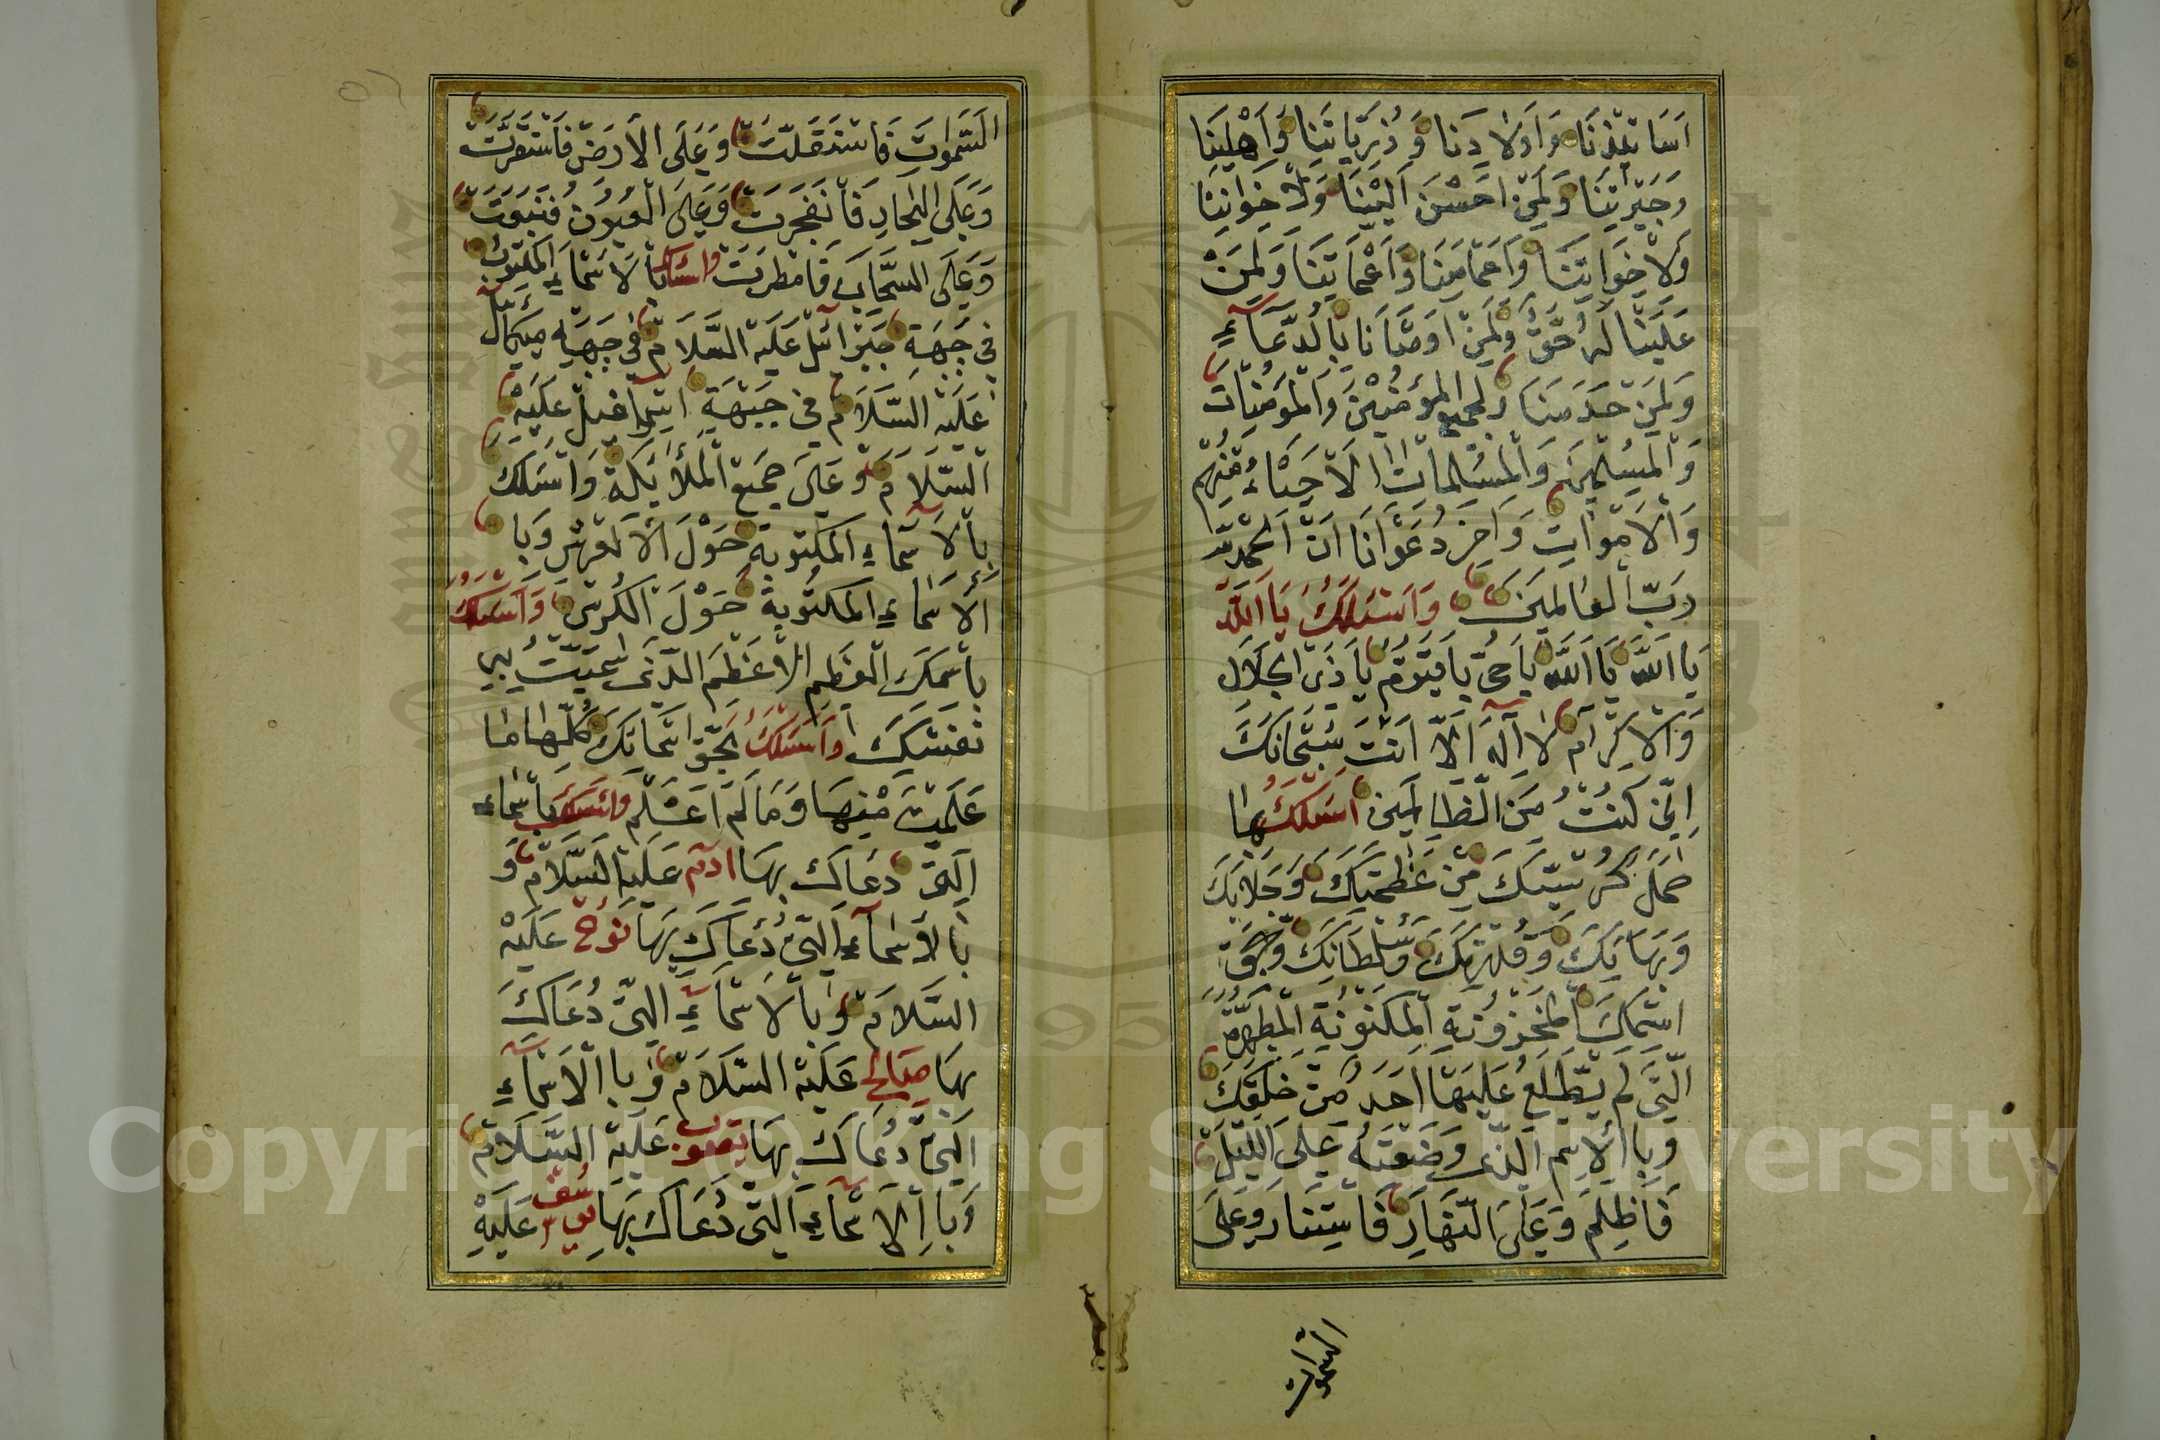 اَسَاتِيْذِنَا وَاَوْلَادِنَا وَذُرِّيَّاتِنَا وَاَهْلِيْنَا
وَجِيْرَتِنَا وَلِمَنْ اَحْسَنَ اِلَيْنَا وَلِاِخْوَانِنَا
وَلِاَخَوَاتِنَا وَاَعْمَامِنَا وَاَعْمَاتِنَا وَلِمَنْ
عَلَيْنَا لَهُ حَقٌّ وَلِمَنْ اَوْصَانَا بِالدُّعَآءِ
وَلِمَنْ خَدَمَنَا ولجميع المؤمنين وَالْمُؤْمِنَاتِ
وَالْمُسْلِمِيْنَ وَالْمُسْلِمَاتِ الْاَحْيَاءِ مِنْهُمْ
وَالْاَمْوَاتِ وَاٰخِرُ دَعْوَانَا اَنِ الْحَمْدُ لِلّٰهِ
رَبِّ الْعَالَمِيْنَ وَاَسْئَلُكَ يَا اَللّٰهُ
يَا اَللّٰهُ يَا اَللّٰهُ يَا حَيُّ يَا قَيُّوْمُ يَا ذَى الْجَلَالِ
وَالْاِكْرَامِ لَا اِلٰهَ اِلَّا اَنْتَ سُبْحَانَكَ
اِنِّي كُنْتُ مِنَ الظَّالِمِيْنَ اَسْئَلُكَ بِمَا
حَمَلَ كُرْسِيُّكَ مِنْ عَظَمَتِكَ وَجَلَالِكَ
وَبَهَائِكَ وَقُدْرَتِكَ وَسُلْطَانِكَ وَبِحَقِّ
اسْمِكَ الْمَخْزُوْنَةِ الْمَكْنُوْنَةِ الْمُطَهَّرَةِ
الَّتِي لَمْ يَطَّلِعْ عَلَيْهَا اَحَدٌ مِنْ خَلْقِكَ
وَبِالْاِسْمِ الَّذِى وَضَعْتَهُ عَلَى اللَّيْلِ
فَاَظْلَمَ وَعَلَى النَّهَارِ فَاسْتَنَارَ وَعَلَى
السموات
السَّمٰوَاتِ فَاسْتَقَلَّتْ وَعَلَى الْاَرْضِ فَاسْتَقَرَّتْ
وَعَلَى الْبِحَارِ فَانْفَجَرَتْ وَعَلَى الْعُيُوْنِ فَنَبَعَتْ
وَعَلَى السَّحَابِ فَامْطَرَتْ واسئلك بالاَسْمَاءِ المكتوبة
فِي جَبْهَةِ جَبْرَائِلَ عَلَيْهِ السَّلَامُ فِي جَبْهَةِ مِيكَائِلَ
عَلَيْهِ السَّلَامُ فِي جَبْهَةِ اِسْرَافِيْلَ عَلَيْهِ
السَّلَامُ وَعَلَى جَمِيْعِ الْمَلَائِكَةِ وَاَسْئَلُكَ
بِالْاَسْمَاءِ الْمَكْتُوْبَةِ حَوْلَ الْاَلْعَرْشِ وَبِا
الْاَسْمَاءِ الْمَكْتُوْبَةِ حَوْلَ الْكُرْسِي وَاَسْئَلُكَ
بِاسْمِكَ الْعَظِيْمِ الْاَعْظَمِ الَّذِى سَمَّيْتَ بِهِ
نَفْسَكَ وَاَسْئَلُكَ بِحَقِّ اَسْمَائِكَ كُلِّهَا مَا
عَلِمْتُ مِنْهَا وَمَا لَمْ اَعْلَمْ وَاسئلك بِاَسْمَاءِ
الَّتِي دَعَاكَ بِهَا اٰدَمُ عَلَيْهِ السَّلَامُ وَ
بِالْاَسْمَآءِ الَّتِي دُعَاكَ بِهَا نُوْحٌ عَلَيْهِ
السَّلَامُ وَبِالْاَسْمَآءِ الَّتِي دُعَاكَ
بِهَا صَالِحٌ عَلَيْهِ السَّلَامُ وَبِا الْاَسْمَآءِ
الَّتِي دُعَاكَ بِهَا يَعْقُوْبُ عَلَيْهِ السَّلَامُ
وَبِا الْاَسْمَاءِ الَّتِي دُعَاكَ بِهَا يوسُف عَلَيْهِ
Copyright © King Saud University